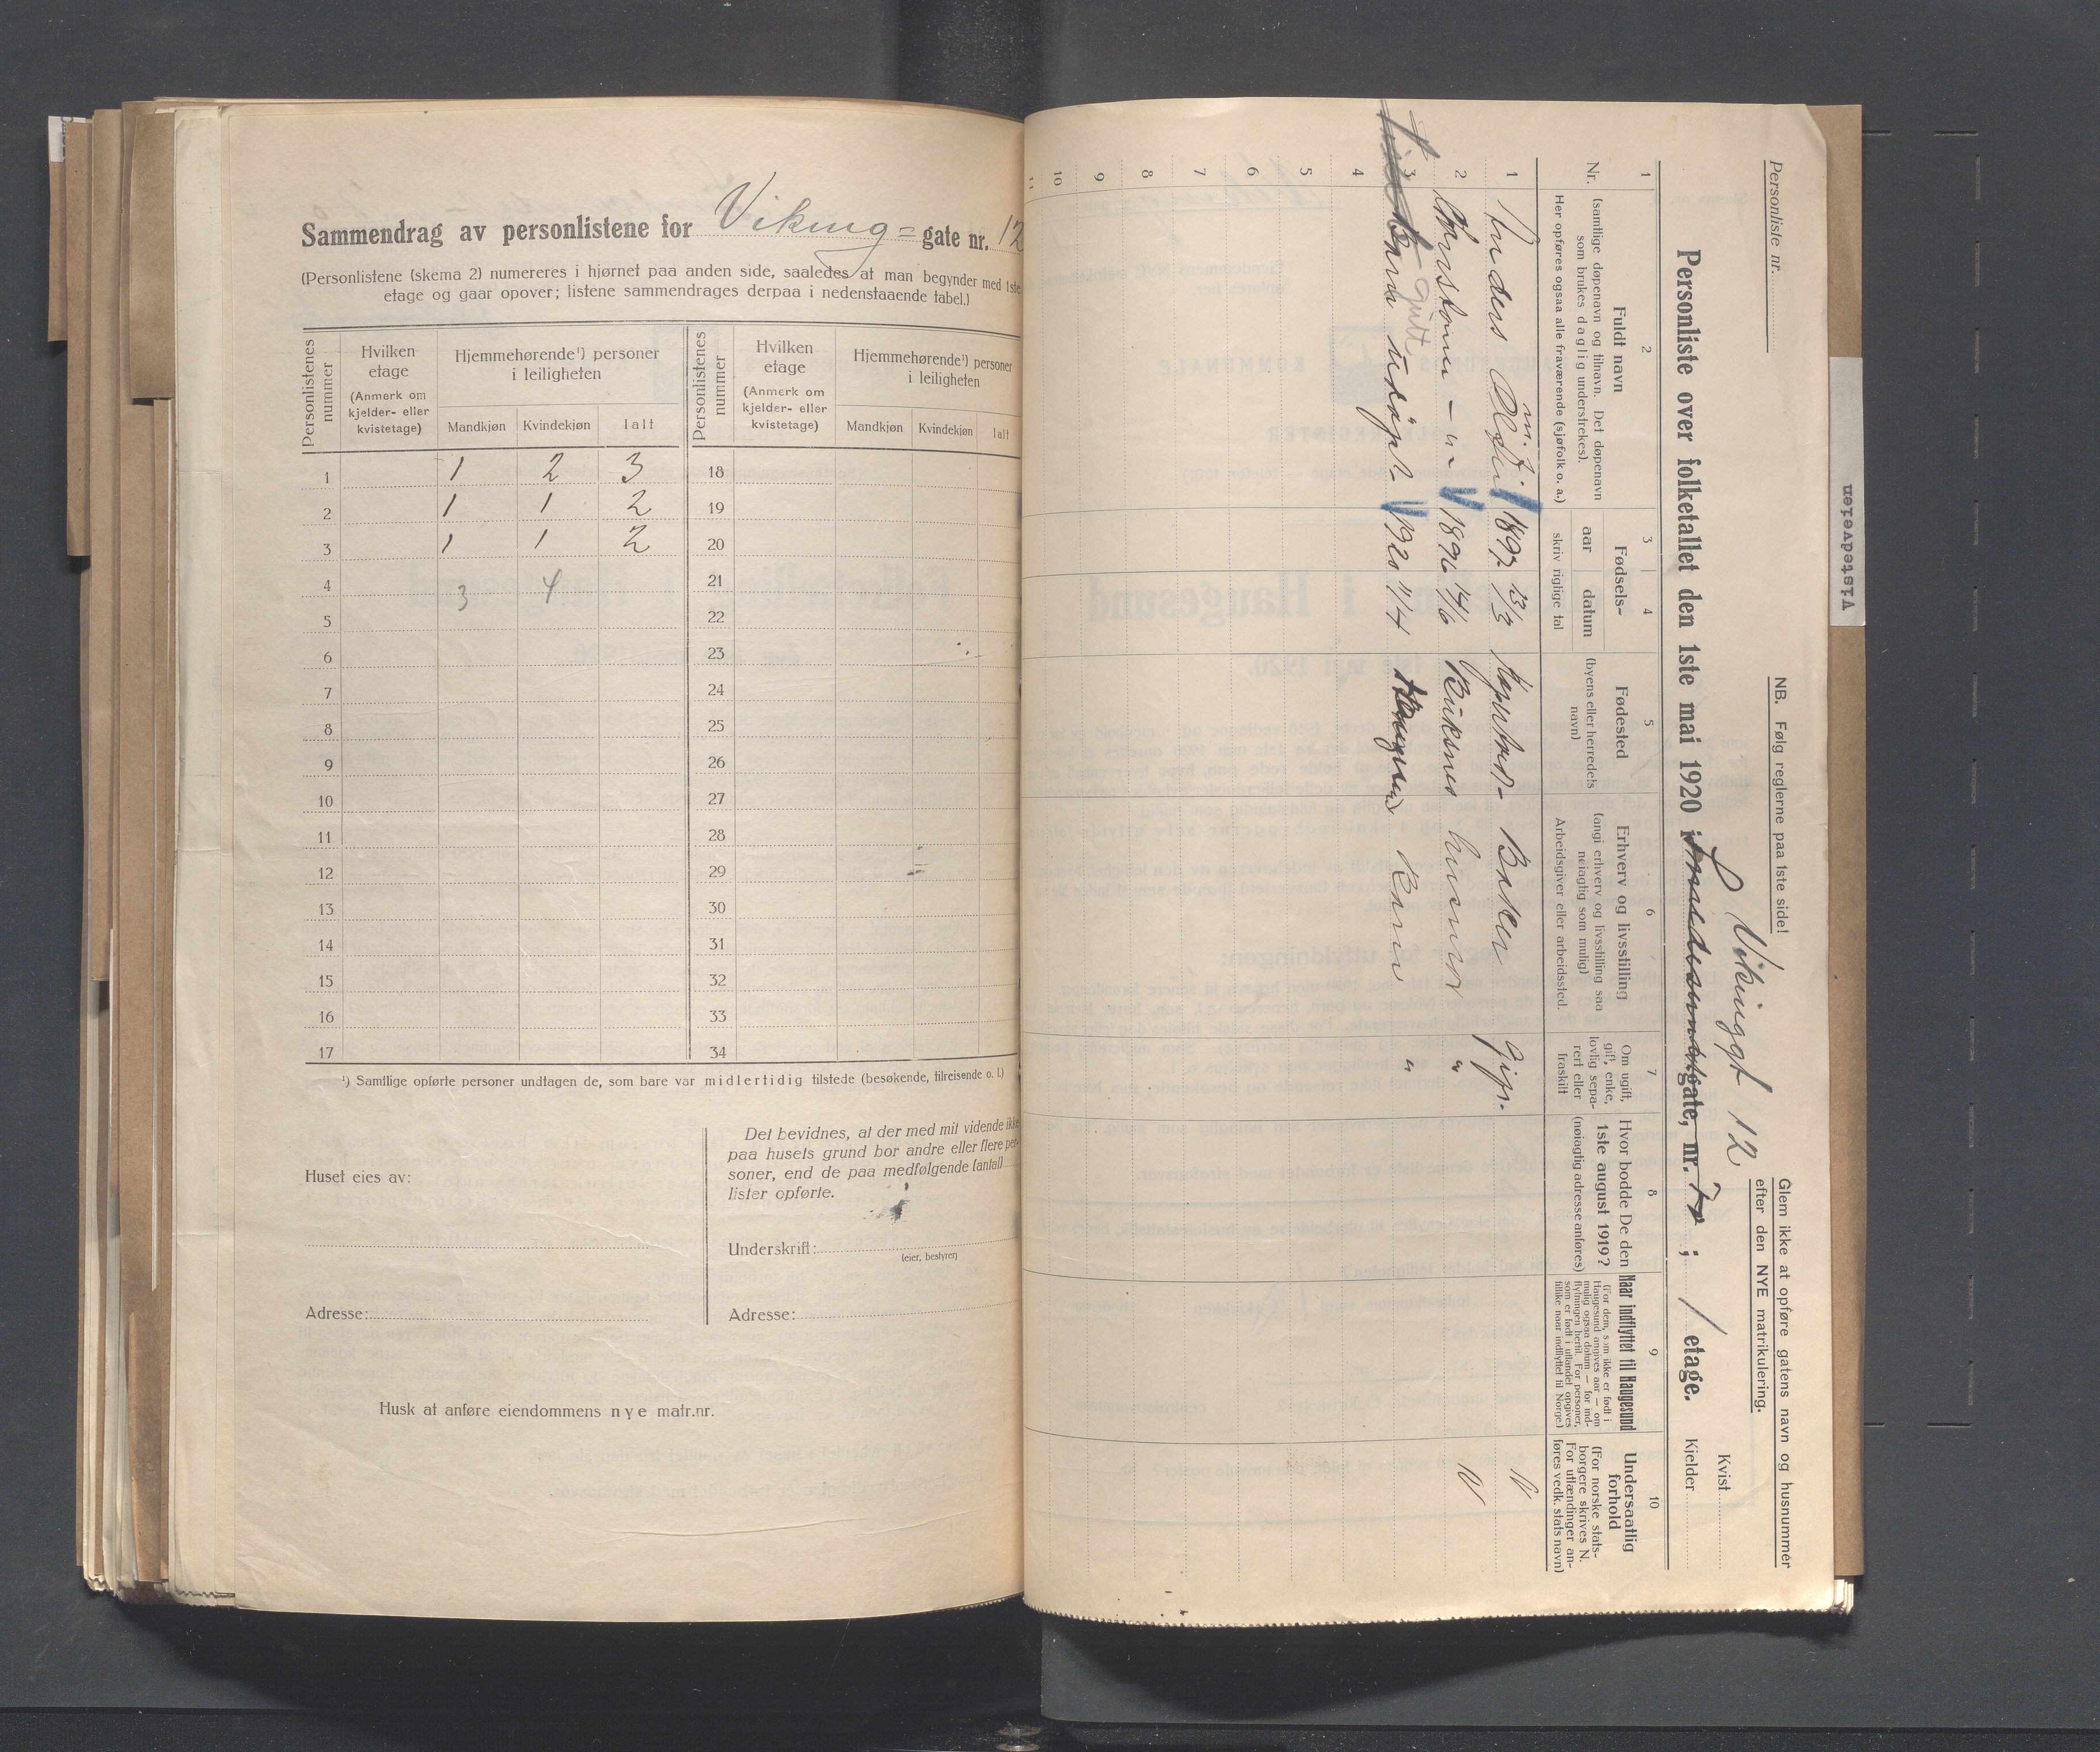 Sammendrag av personlistene for Viking= gate nr. 12
(Personlistene (skema 2) numereres i hjørnet paa anden side, saaledes at man begynder med 1ste
etage og gaar opover; listene sammendrages derpaa i nedenstaaende tabel.)
Personlistenes nummer
Hvilken etage
(Anmerk om kjelder- eller kvistetage)
Hjemmehørende¹) personer i leiligheten
Mandkjøn Kvindekjøn Ialt
Personlistenes nummer
Hvilken etage
(Anmerk om kjelder- eller kvistetage)
Hjemmehørende¹) personer i leiligheten
Mandkjøn Kvindekjøn Ialt
1 1 2 3 18
2 1 1 2 19
3 1 1 2 20
4 3 4 21
5 22
6 23
7 24
8 25
9 26
10 27
11 28
12 29
13 30
14 31
15 32
16 33
17 34
¹) Samtlige opførte personer undtagen de, som bare var midlertidig tilstede (besøkende, tilreisende o. l.)
Huset eies av:
Adresse:
Det bevidnes, at der med mit vidende ikke
paa husets grund bor andre eller flere per-
soner, end de paa medfølgende (antall
lister opførte.
Underskrift:
(eier, bestyrer)
Adresse:
Husk at anføre eiendommens nye matr.nr.
Personliste nr.
NB. Følg reglerne paa 1ste side!
Glem ikke at opføre gatens navn og husnummer
efter den NYE matrikulering.
Vikinggt 12
Kvist
Personliste over folketallet den 1ste mai 1920 i gate, nr. ; 1 etage.
Kjelder
1 2 3 4 5 6 7 8 9 10
Nr.
Fuldt navn
(samtlige døpenavn og tilnavn. Det døpenavn
som brukes daglig understrekes).
Her opføres ogsaa alle fraværende (sjøfolk o. a.)
Fødsels-
aar datum
skriv riglige tal
Fødested
(byens eller herredets
navn)
Erhverv og livsstilling
(angi erhverv og livsstilling saa
nøiagtig som mulig)
Arbeidsgiver eller arbeidssted.
Om ugift,
gift, enke,
lovlig sepa-
rert eller
fraskilt
Hvor bodde De den
1ste august 1919?
(nøiagtig adresse anføres)
Naar indflyttet til Haugesund
(For dem, som ikke er født i
Haugesund angives aar — om
mulig ogsaa datum — for ind-
flytningen hertil. For personer,
som er født i utlandet opgives
tillike naar indflyttet til Norge.)
Undersaatlig
forhold
(For norske stats-
borgere skrives N.
For utlændinger an-
føres vedk. stats navn)
1 Anders 1892 13/3 Baker gift. N
2 — " — 1896 14/6 Buksnes husmor " N
3 Barn udøpt 1920 11/4 Barn "
Gutt
4
5
6
7
8
9
10
11
Vistedveten